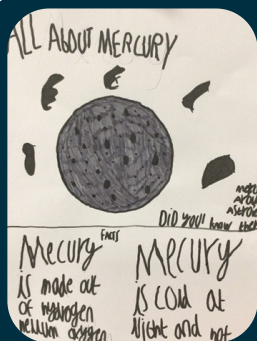 ALL ABOUT MERCURY
DiD you! know that
FACTS
Mecury
is made out
of hydrogen
helium oxygen
MECURY
is COLD at
Night and hot